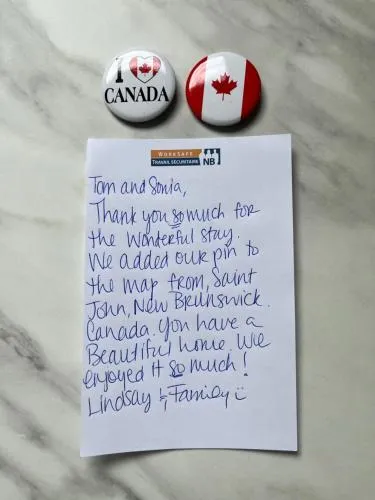 I
CANADA
WORKSAFE
TRAVAIL SÉCURITAIRE NB
Tom and Sonia,
Thank you so much for
the wonderful stay.
We added our pin to
the map from, Saint
John, New Brunswick.
Canada. You have a
Beautiful home. We
enjoyed it so much!
Lindsay & Family